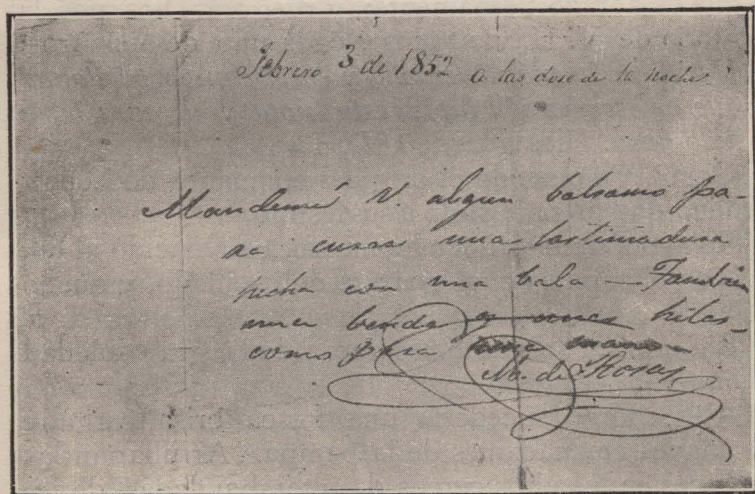 Febrero 3 de 1852 a las dose de la noche
Mandemé V. algun balsamo pa-
ra curar una lastimadura
hecha con una bala — Tambien
una benda y unas hilas
como para una mano
M. de Rosas